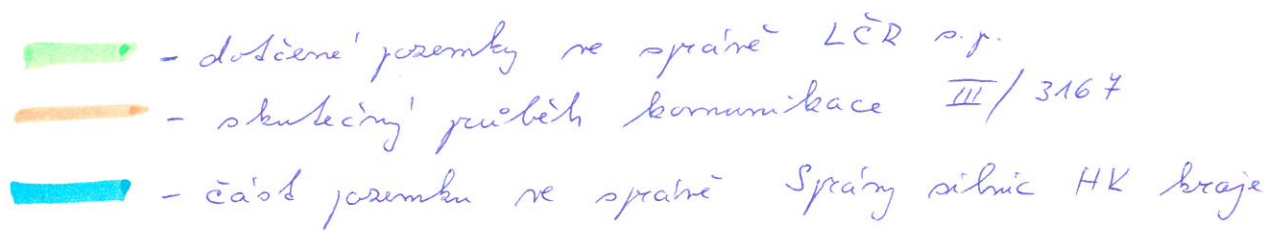 - dotčené pozemky ve správě LČR s.p.
- skutečný průběh komunikace III/3167
- část pozemku ve správě Správy silnic HK kraje